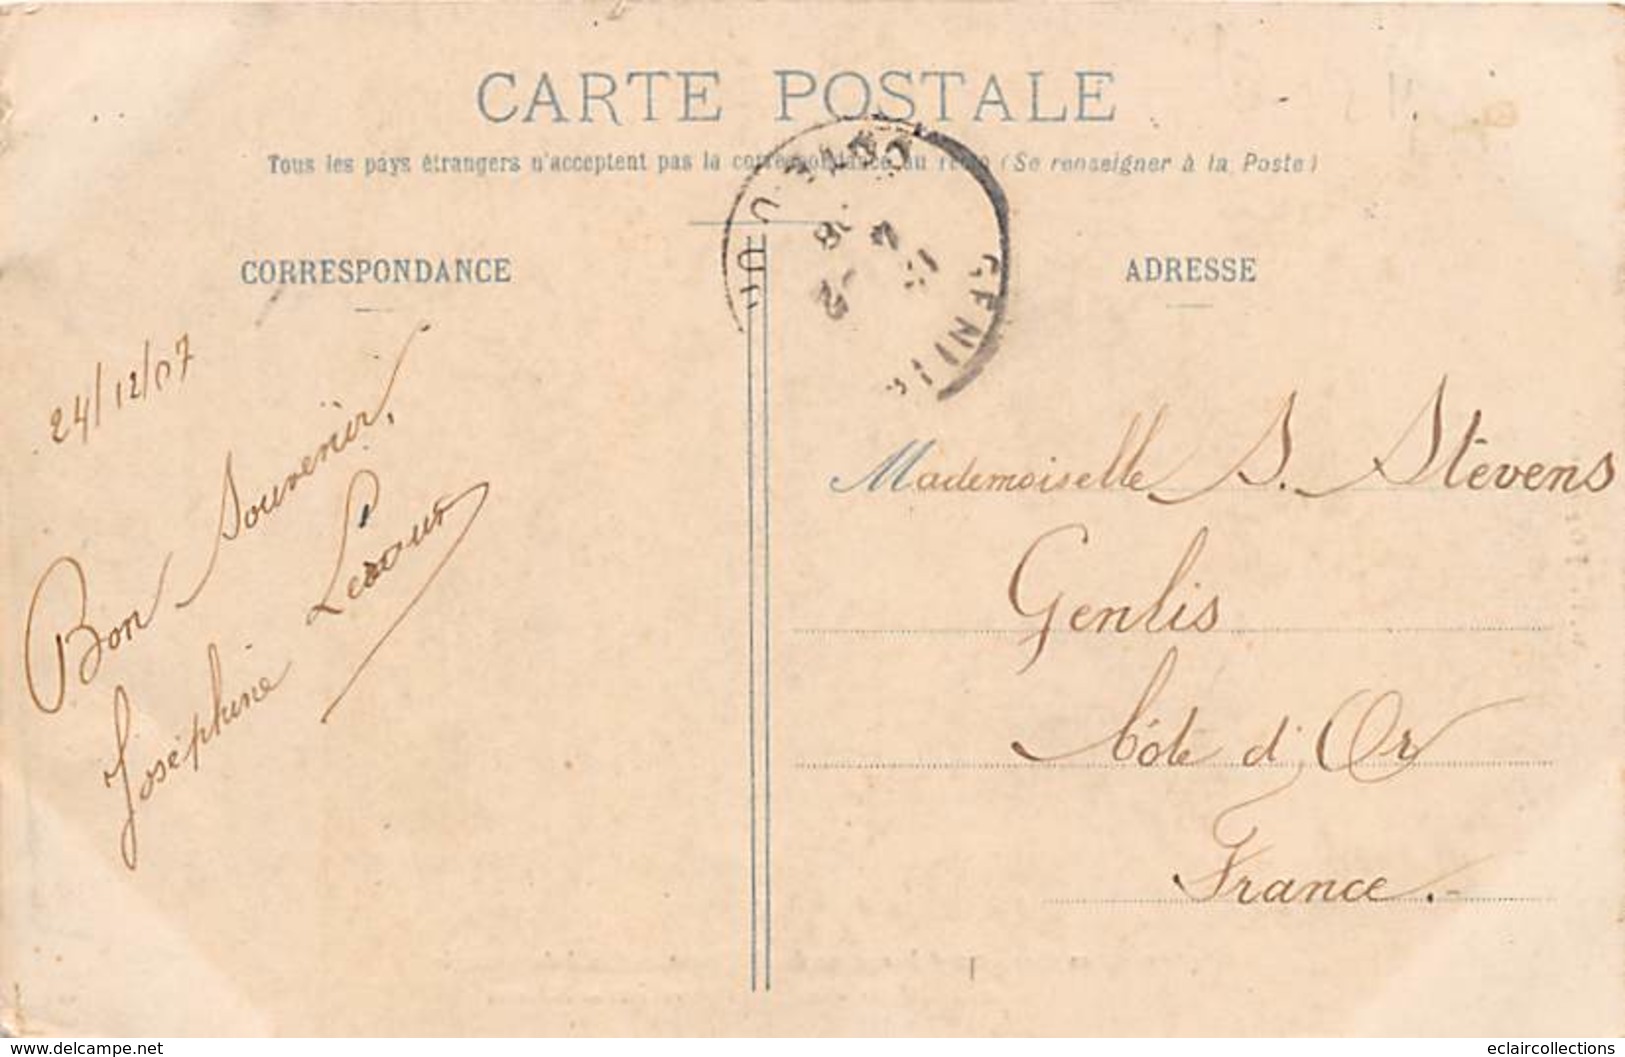 CARTE POSTALE
Tous les pays étrangers n'acceptent pas la correspondance au recto (Se renseigner à la Poste)
CORRESPONDANCE
ADRESSE
24/12/07
Bon Souvenir,
Joséphine
Mademoiselle S. Stévens
Genlis
Côte d'Or
France.-
https://www.delcampe.net
eclaircollections